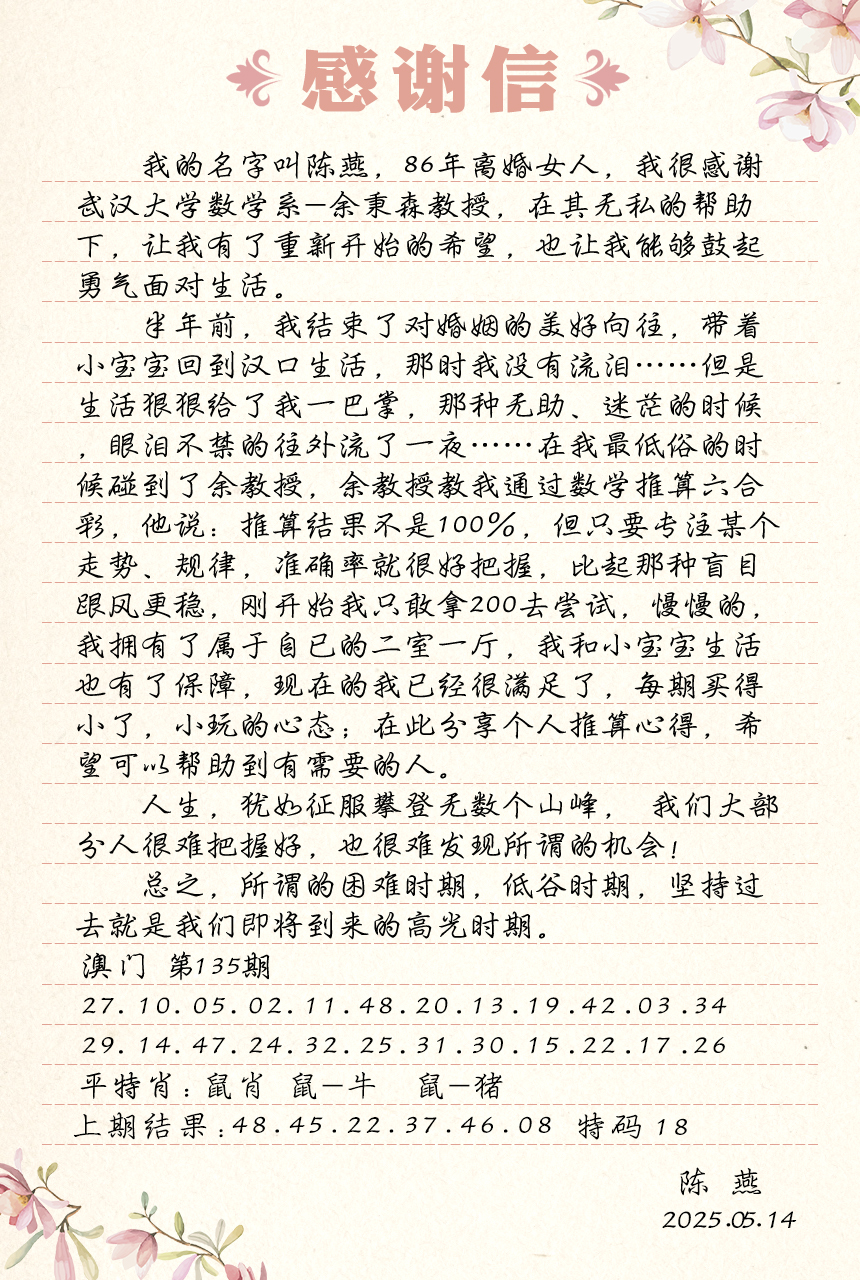 感谢信
我的名字叫陈燕，86年离婚女人，我很感谢
武汉大学数学系—余秉森教授，在其无私的帮助
下，让我有了重新开始的希望，也让我能够鼓起
勇气面对生活。
半年前，我结束了对婚姻的美好向往，带着
小宝宝回到汉口生活，那时我没有流泪……但是
生活狠狠给了我一巴掌，那种无助、迷茫的时候
，眼泪不禁的往外流了一夜……在我最低俗的时
候碰到了余教授，余教授教我通过数学推算六合
彩，他说：推算结果不是100%，但只要专注某个
走势、规律，准确率就很好把握，比起那种盲目
跟风更稳，刚开始我只敢拿200去尝试，慢慢的，
我拥有了属于自已的二室一厅，我和小宝宝生活
也有了保障，现在的我已经很满足了，每期买得
小了，小玩的心态；在此分享个人推算心得，希
望可以帮助到有需要的人。
人生，犹如征服攀登无数个山峰， 我们大部
分人很难把握好，也很难发现所谓的机会！
总之，所谓的困难时期，低谷时期，坚持过
去就是我们即将到来的高光时期。
澳门 第135期
27.10.05.02.11.48.20.13.19.42.03.34
29.14.47.24.32.25.31.30.15.22.17.26
平特肖：鼠肖 鼠—牛 鼠—猪
上期结果：48.45.22.37.46.08 特码18
陈 燕
2025.05.14